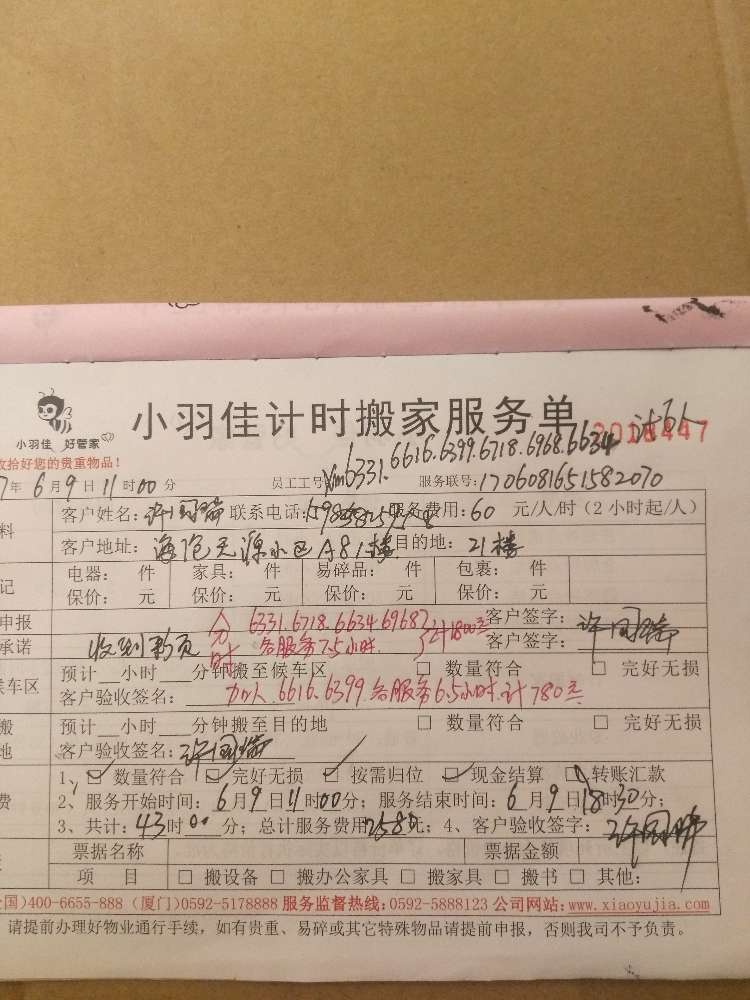 小羽佳 好管家
小羽佳计时搬家服务单
计6人
收拾好您的贵重物品！
7年6月9日11时00分 员工工号：Nm6331.6616.6399.6718.6968.6634 服务联号：1706081651582070
料 客户姓名：许国瑞 联系电话： 服务费用：60 元/人/时（2小时起/人）
客户地址：海沧天源小区A81楼 目的地：21楼
记 电器： 件 家具： 件 易碎品： 件 包裹： 件
保价： 元 保价： 元 保价： 元 保价： 元
申报 分时 6331.6718.6634.6968 计1800元 客户签字：许国瑞
承诺 收到 各服务7.5小时. 客户签字：
候车区 预计__小时__分钟搬至候车区 □ 数量符合 □ 完好无损
客户验收签名： 加人.6616.6399各服务6.5小时.计780元
搬 预计__小时__分钟搬至目的地 □ 数量符合 □ 完好无损
地 客户验收签名：许国瑞
1、☑ 数量符合 ☑ 完好无损 ☑ 按需归位 ☑ 现金结算 ☑ 转账汇款
费 2、服务开始时间：6月9日11时00分；服务结束时间：6月9日18时30分；
3、共计：43时00分；总计服务费用2580元；4、客户验收签字：许国瑞
票据名称 票据金额
项 目 □ 搬设备 □ 搬办公家具 □ 搬家具 □ 搬书 □ 其他：
国)400-6655-888（厦门)0592-5178888 服务监督热线:0592-5888123 公司网站:www.xiaoyujia.com
请提前办理好物业通行手续，如有贵重、易碎或其它特殊物品请提前申报，否则我司不予负责。